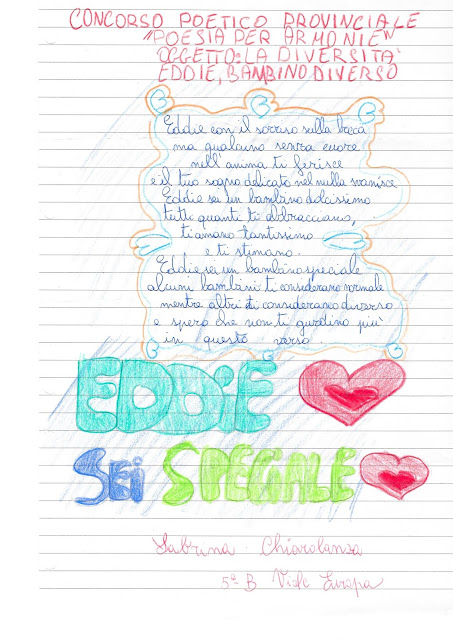 CONCORSO POETICO PROVINCIALE
"POESIA PER ARMONIE"
OGGETTO: LA DIVERSITA'
EDDIE, BAMBINO DIVERSO
Eddie con il sorriso sulla bocca
ma qualcuno senza cuore
nell'anima ti ferisce
e il tuo sogno delicato nel nulla svanisce
Eddie sei un bambino dolcissimo
tutti quanti ti abbracciano,
ti amano tantissimo
e ti stimano.
Eddie sei un bambino speciale
alcuni bambini ti considerano normale
mentre altri ti considerano diverso
e spero che non ti guardino più
in questo verso.
EDDIE
SEI SPECIALE
Sabrina Chiarolanza
5ª B Viale Europa